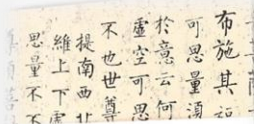 布施其福
可思量須
於意云何
虛空可思
不也世尊
提南西北
維上下虛
思量不不